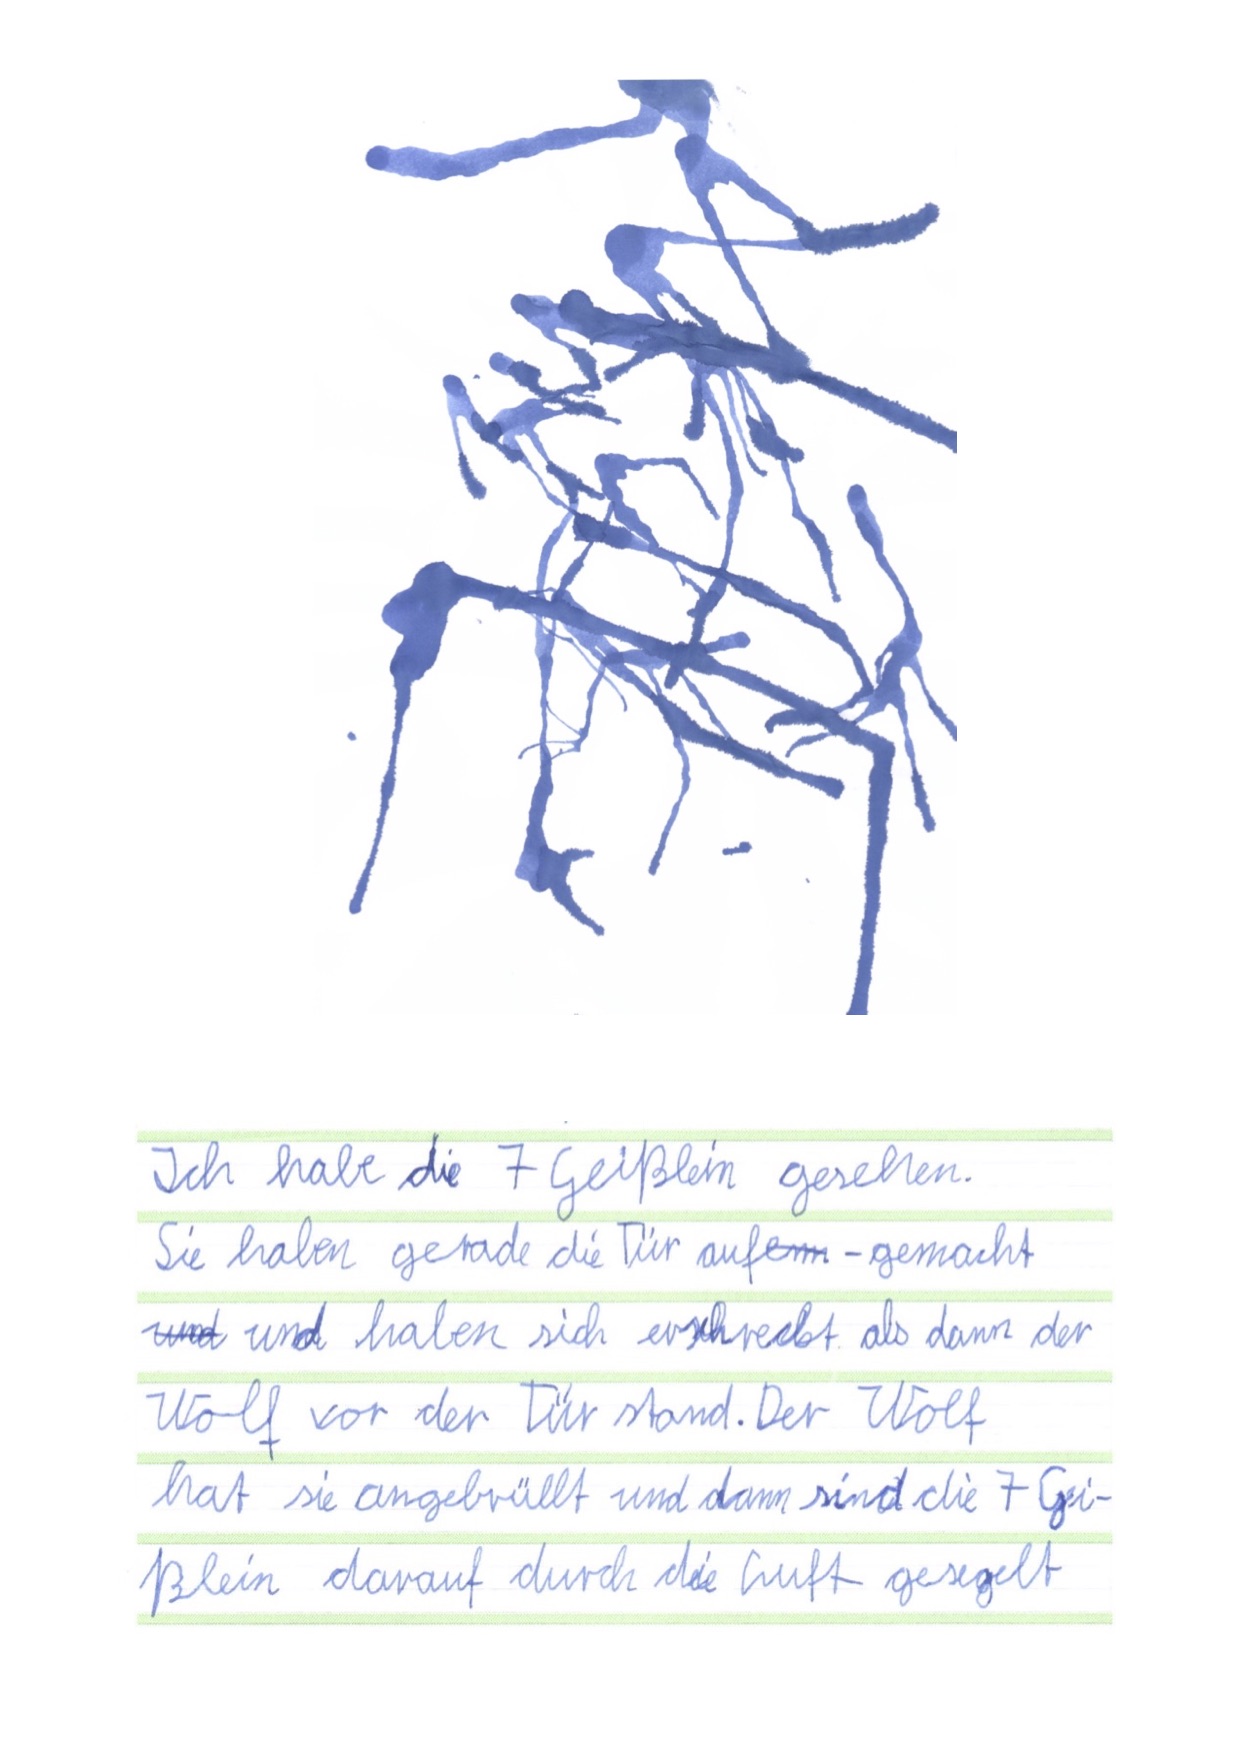 Ich habe die 7 Geißlein gesehen.
Sie haben gerade die Tür auf -gemacht
und und haben sich erschreckt als dann der
Wolf vor der Tür stand. Der Wolf
hat sie angebrüllt und dann sind die 7 Gei-
ßlein darauf durch die Luft gesegelt